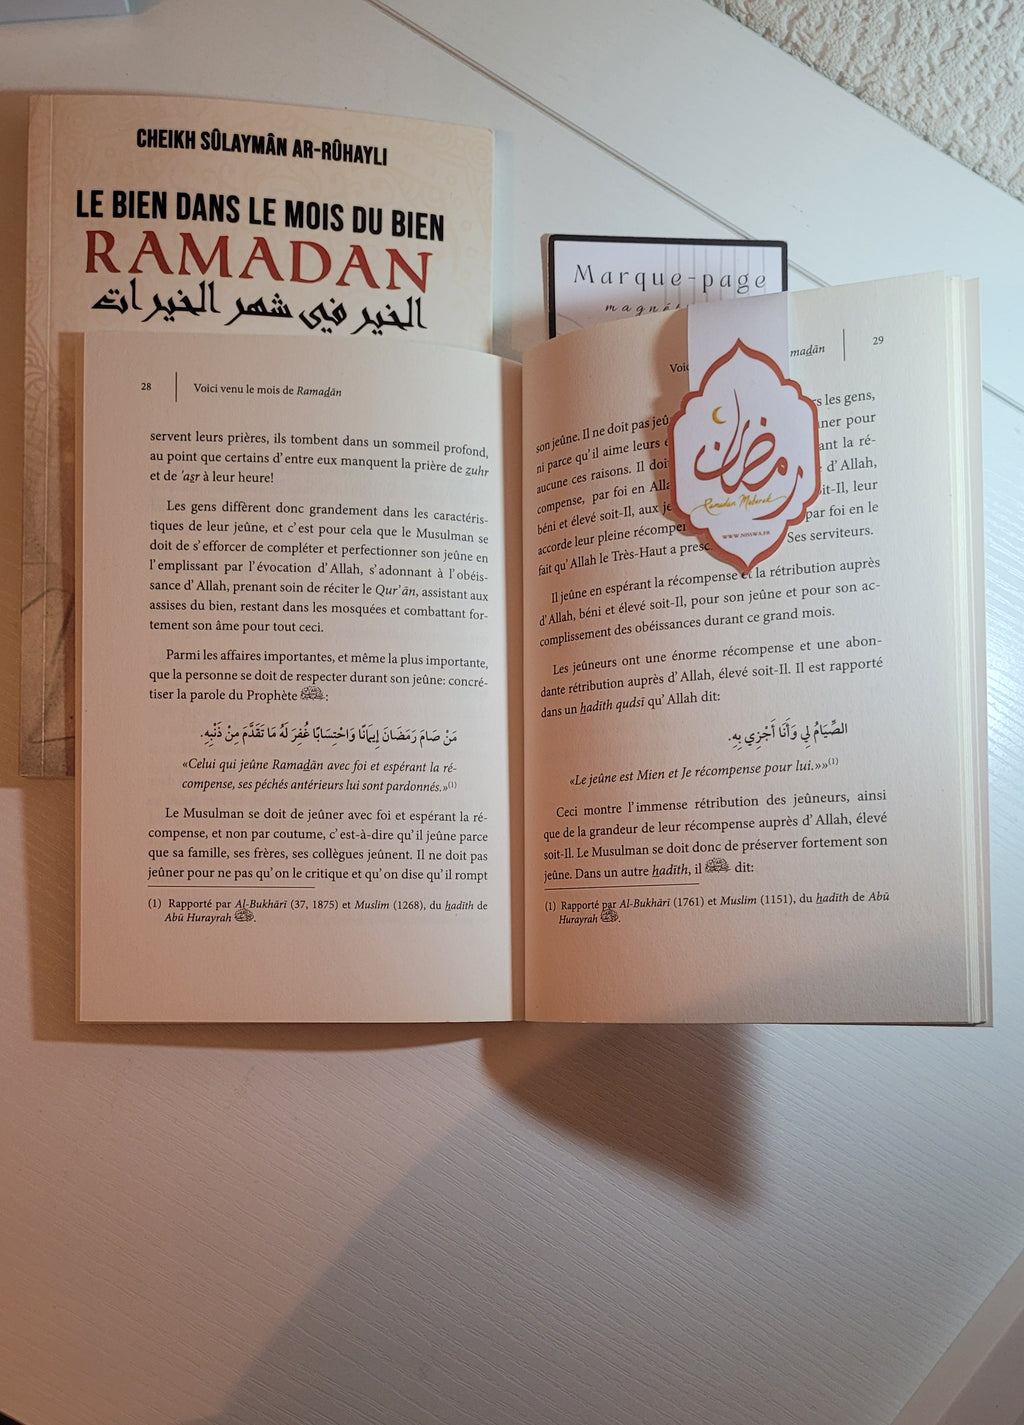 CHEIKH SÛLAYMÂN AR-RÛHAYLI
LE BIEN DANS LE MOIS DU BIEN
RAMADAN
الخير في شهر الخيرات
Marque-page
28
Voici venu le mois de Ramaḏān
servent leurs prières, ils tombent dans un sommeil profond,
au point que certains d'entre eux manquent la prière de zuhr
et de 'aṣr à leur heure!
Les gens diffèrent donc grandement dans les caractéris-
tiques de leur jeûne, et c'est pour cela que le Musulman se
doit de s'efforcer de compléter et perfectionner son jeûne en
l'emplissant par l'évocation d'Allah, s'adonnant à l'obéis-
sance d'Allah, prenant soin de réciter le Qur'ān, assistant aux
assises du bien, restant dans les mosquées et combattant for-
tement son âme pour tout ceci.
Parmi les affaires importantes, et même la plus importante,
que la personne se doit de respecter durant son jeûne: concré-
tiser la parole du Prophète ﷺ:
مَنْ صَامَ رَمَضَانَ إِيمَانًا وَاحْتِسَابًا غُفِرَ لَهُ مَا تَقَدَّمَ مِنْ ذَنْبِهِ.
«Celui qui jeûne Ramaḏān avec foi et espérant la ré-
compense, ses péchés antérieurs lui sont pardonnés.»(1)
Le Musulman se doit de jeûner avec foi et espérant la ré-
compense, et non par coutume, c'est-à-dire qu'il jeûne parce
que sa famille, ses frères, ses collègues jeûnent. Il ne doit pas
jeûner pour ne pas qu'on le critique et qu'on dise qu'il rompt
(1) Rapporté par Al-Bukhārī (37, 1875) et Muslim (1268), du ḥadīth de
Abū Hurayrah
29
maḏān
son jeûne. Il ne doit pas
s les gens,
ni parce qu'il aime leurs
ner pour
aucune ces raisons. Il
ant la ré-
compense, par foi en
d'Allah,
béni et élevé soit-Il, aux
soit-Il, leur
accorde leur pleine
par foi en le
fait qu'Allah le Très-Haut a
Ses serviteurs.
Il jeûne en espérant la récompense et la rétribution auprès
d'Allah, béni et élevé soit-Il, pour son jeûne et pour son ac-
complissement des obéissances durant ce grand mois.
Les jeûneurs ont une énorme récompense et une abon-
dante rétribution auprès d'Allah, élevé soit-Il. Il est rapporté
dans un ḥadīth qudsī qu'Allah dit:
الصِّيَامُ لِي وَأَنَا أَجْزِي بِهِ.
«Le jeûne est Mien et Je récompense pour lui.»»(1)
Ceci montre l'immense rétribution des jeûneurs, ainsi
que de la grandeur de leur récompense auprès d'Allah, élevé
soit-Il. Le Musulman se doit donc de préserver fortement son
jeûne. Dans un autre ḥadīth, il ﷺ dit:
(1) Rapporté par Al-Bukhārī (1761) et Muslim (1151), du ḥadīth de Abū
Hurayrah
رمضان
Ramadan Mubarak